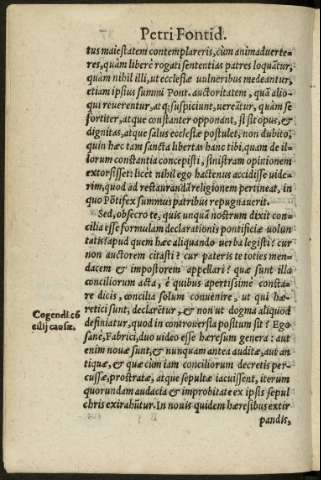 Petri Fontid.
tus maiestatem contemplareris, cùm animaduerte-
res, quàm liberè rogati sententias patres loquãtur,
quàm nihil illi, ut ecclesiæ uulneribus medeantur,
etiam ipsius summi Pont. auctoritatem, quã alio-
qui reuerentur, atq; suspiciunt, uereãtur, quàm se
fortiter, atque constanter opponant, si sit opus, &
dignitas, atque salus ecclesiæ postulet, non dubito,
quin hæc tam sancta libertas hanc tibi, quam de il-
lorum constantia concepisti, sinistram opinionem
extorsisset: licet nihil ego hactenus accidisse uide-
rim, quod ad restaurandã religionem pertineat, in
quo Põtifex summus patribus repugnauerit.
Sed, obsecro te, quis unquã nostrum dixit con-
cilia esse formulam declarationis pontificiæ uolun
tatis? apud quem hæc aliquando uerba legisti? cur
non auctorem citasti? cur pateris te toties men-
dacem & impostorem appellari? quæ sunt illa
conciliorum acta, è quibus apertissime consta-
re dicis, concilia solum conuenire, ut qui hæ-
retici sunt, declarẽtur, & non ut dogma aliquod
definiatur, quod in controuersia positum sit? Ego
Cogendi cõ
cilij causæ.
sanè, Fabrici, duo uideo esse hæresum genera: aut
enim nouæ sunt, & nunquam antea auditæ, aut an
tiquæ, & quæ cùm iam conciliorum decretis per-
cussæ, prostratæ, atque sepultæ iacuissent, iterum
quorundam audacia & improbitate ex ipsis sepul
chris exirahũtur. In nouis quidem hæresibus extir
pandis,